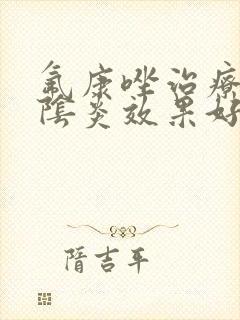 氟康唑治療
陰炎效果好
隋吉平